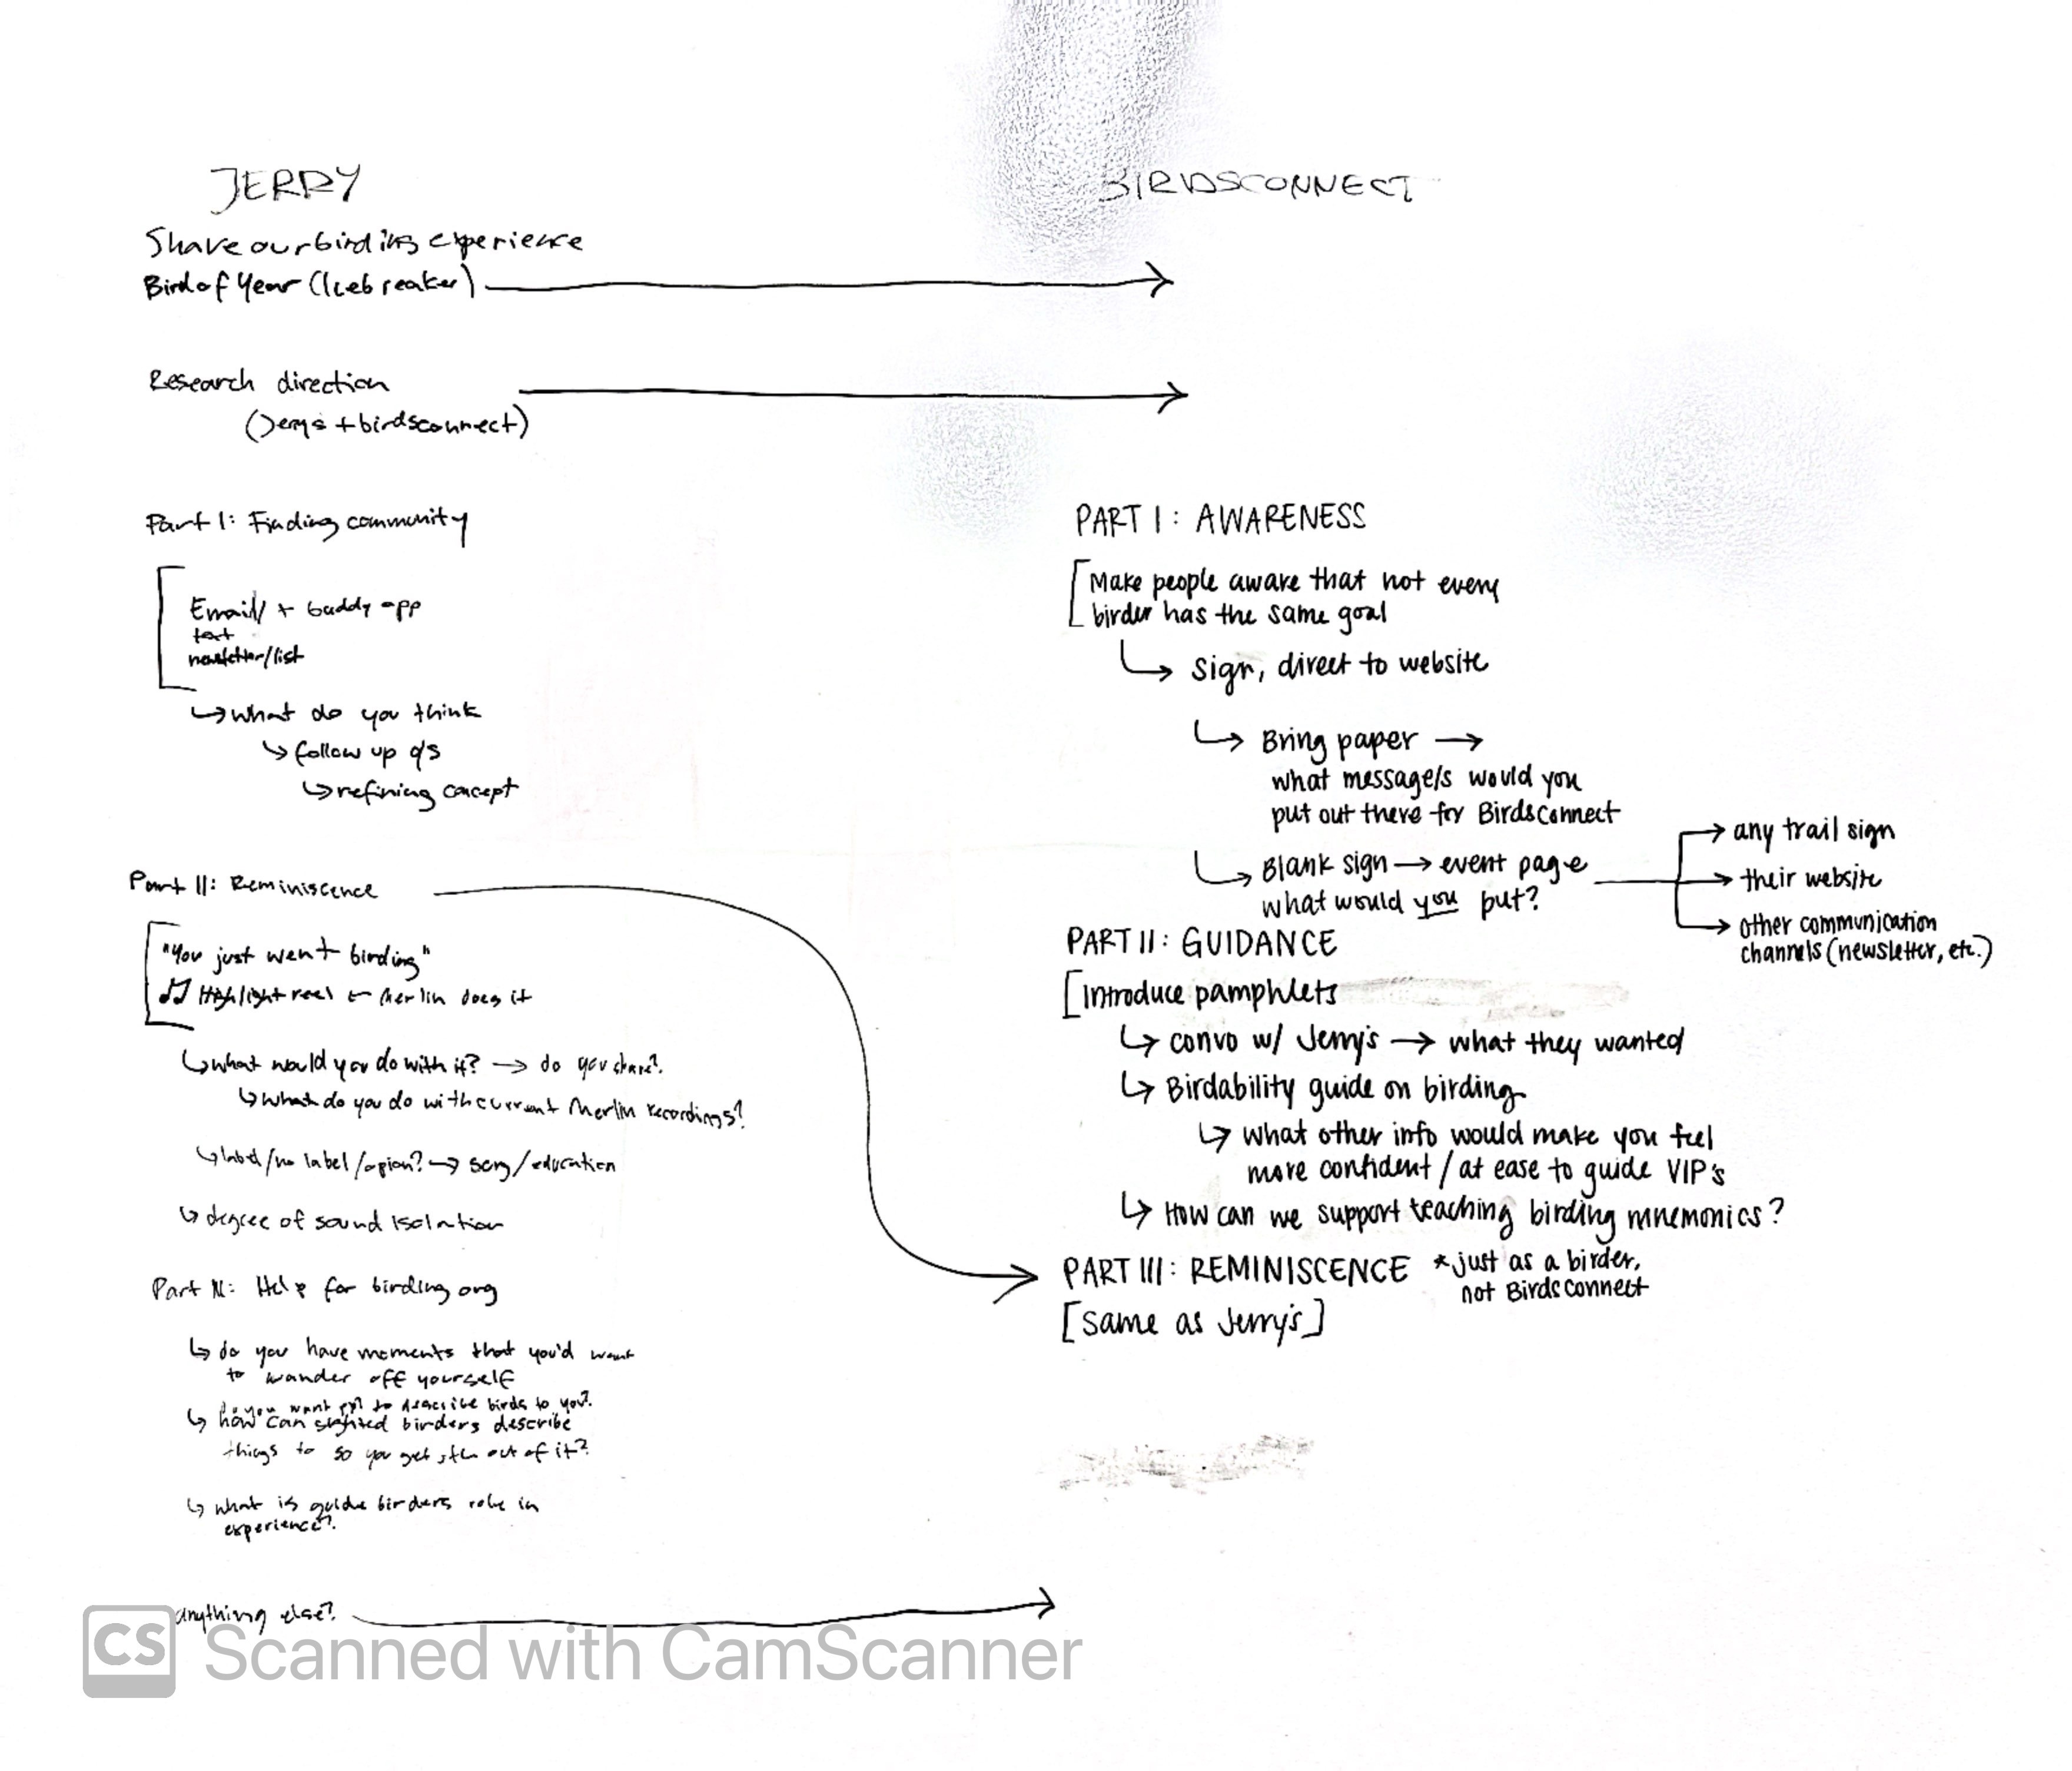 JERRY
Share our birding experience
Bird of Year (Icebreaker)
Research direction
(Jerry's + birdsconnect)
Part I: Finding community
Email/ + buddy app
text
newsletter/list
↳ what do you think
↳ follow up q's
↳ refining concept
Part II: Reminiscence
"You just went birding"
♫ Highlight reel ← Merlin does it
↳ what would you do with it? → do you share?
↳ what do you do with current Merlin recordings?
↳ label/no label/ → /education
↳ degree of sound isolation
Part III: Help for birding org
↳ do you have moments that you'd want
to wander off yourself
Do you want ppl to describe birds to you?
↳ how can sighted birders describe
things to so you get sth out of it?
↳ what is guide birders role in
experience?
anything else?
BIRDSCONNECT
PART I: AWARENESS
[Make people aware that not every
birder has the same goal
↳ sign, direct to website
↳ Bring paper →
what message/s would you
put out there for BirdsConnect
↳ Blank sign → event page
what would you put?
→ any trail sign
→ their website
→ other communication
channels (newsletter, etc.)
PART II: GUIDANCE
[Introduce pamphlets
↳ convo w/ Jerry's → what they wanted
↳ Birdability guide on birding
↳ what other info would make you feel
more confident / at ease to guide VIP's
↳ How can we support teaching birding mnemonics?
PART III: REMINISCENCE *just as a birder,
not BirdsConnect
[same as Jerry's]
CS Scanned with CamScanner